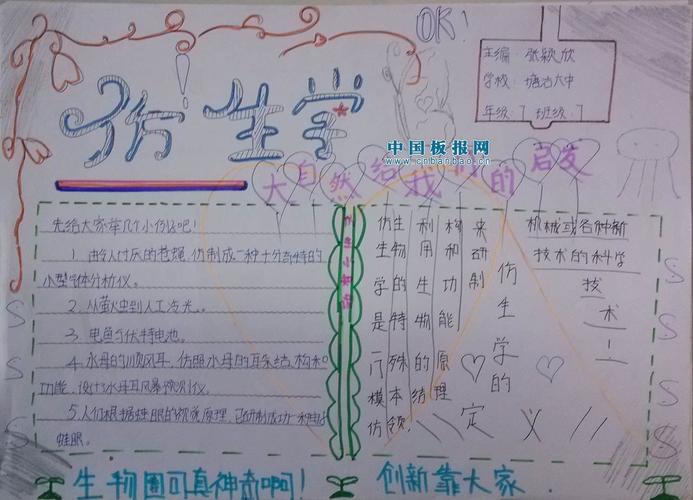 仿生学
OK!
主编 张颖欣
学校:塘沽六中
年级:7 班级:7
中国板报网
www.cnbanbao.cn
大自然给我们的启发
先给大家举几个小例子吧!
1.由令人讨厌的苍蝇,仿制成一种十分奇特的
小型气体分析仪。
2.从萤火虫到人工冷光。
3.电鱼与伏特电池。
4.水母的顺风耳,仿照水母的耳朵结构和
功能,设计了水母耳风暴预测仪。
5.人们根据蛙眼的视觉原理,已研制成功一种电子
蛙眼。
仿生学是一门模仿
生物的特殊本领,
利用生物的结构
和功能原理
来研制
机械或各种新
技术的科学
技
术
仿生学的
定义
生物圈可真神奇啊!
创新靠大家